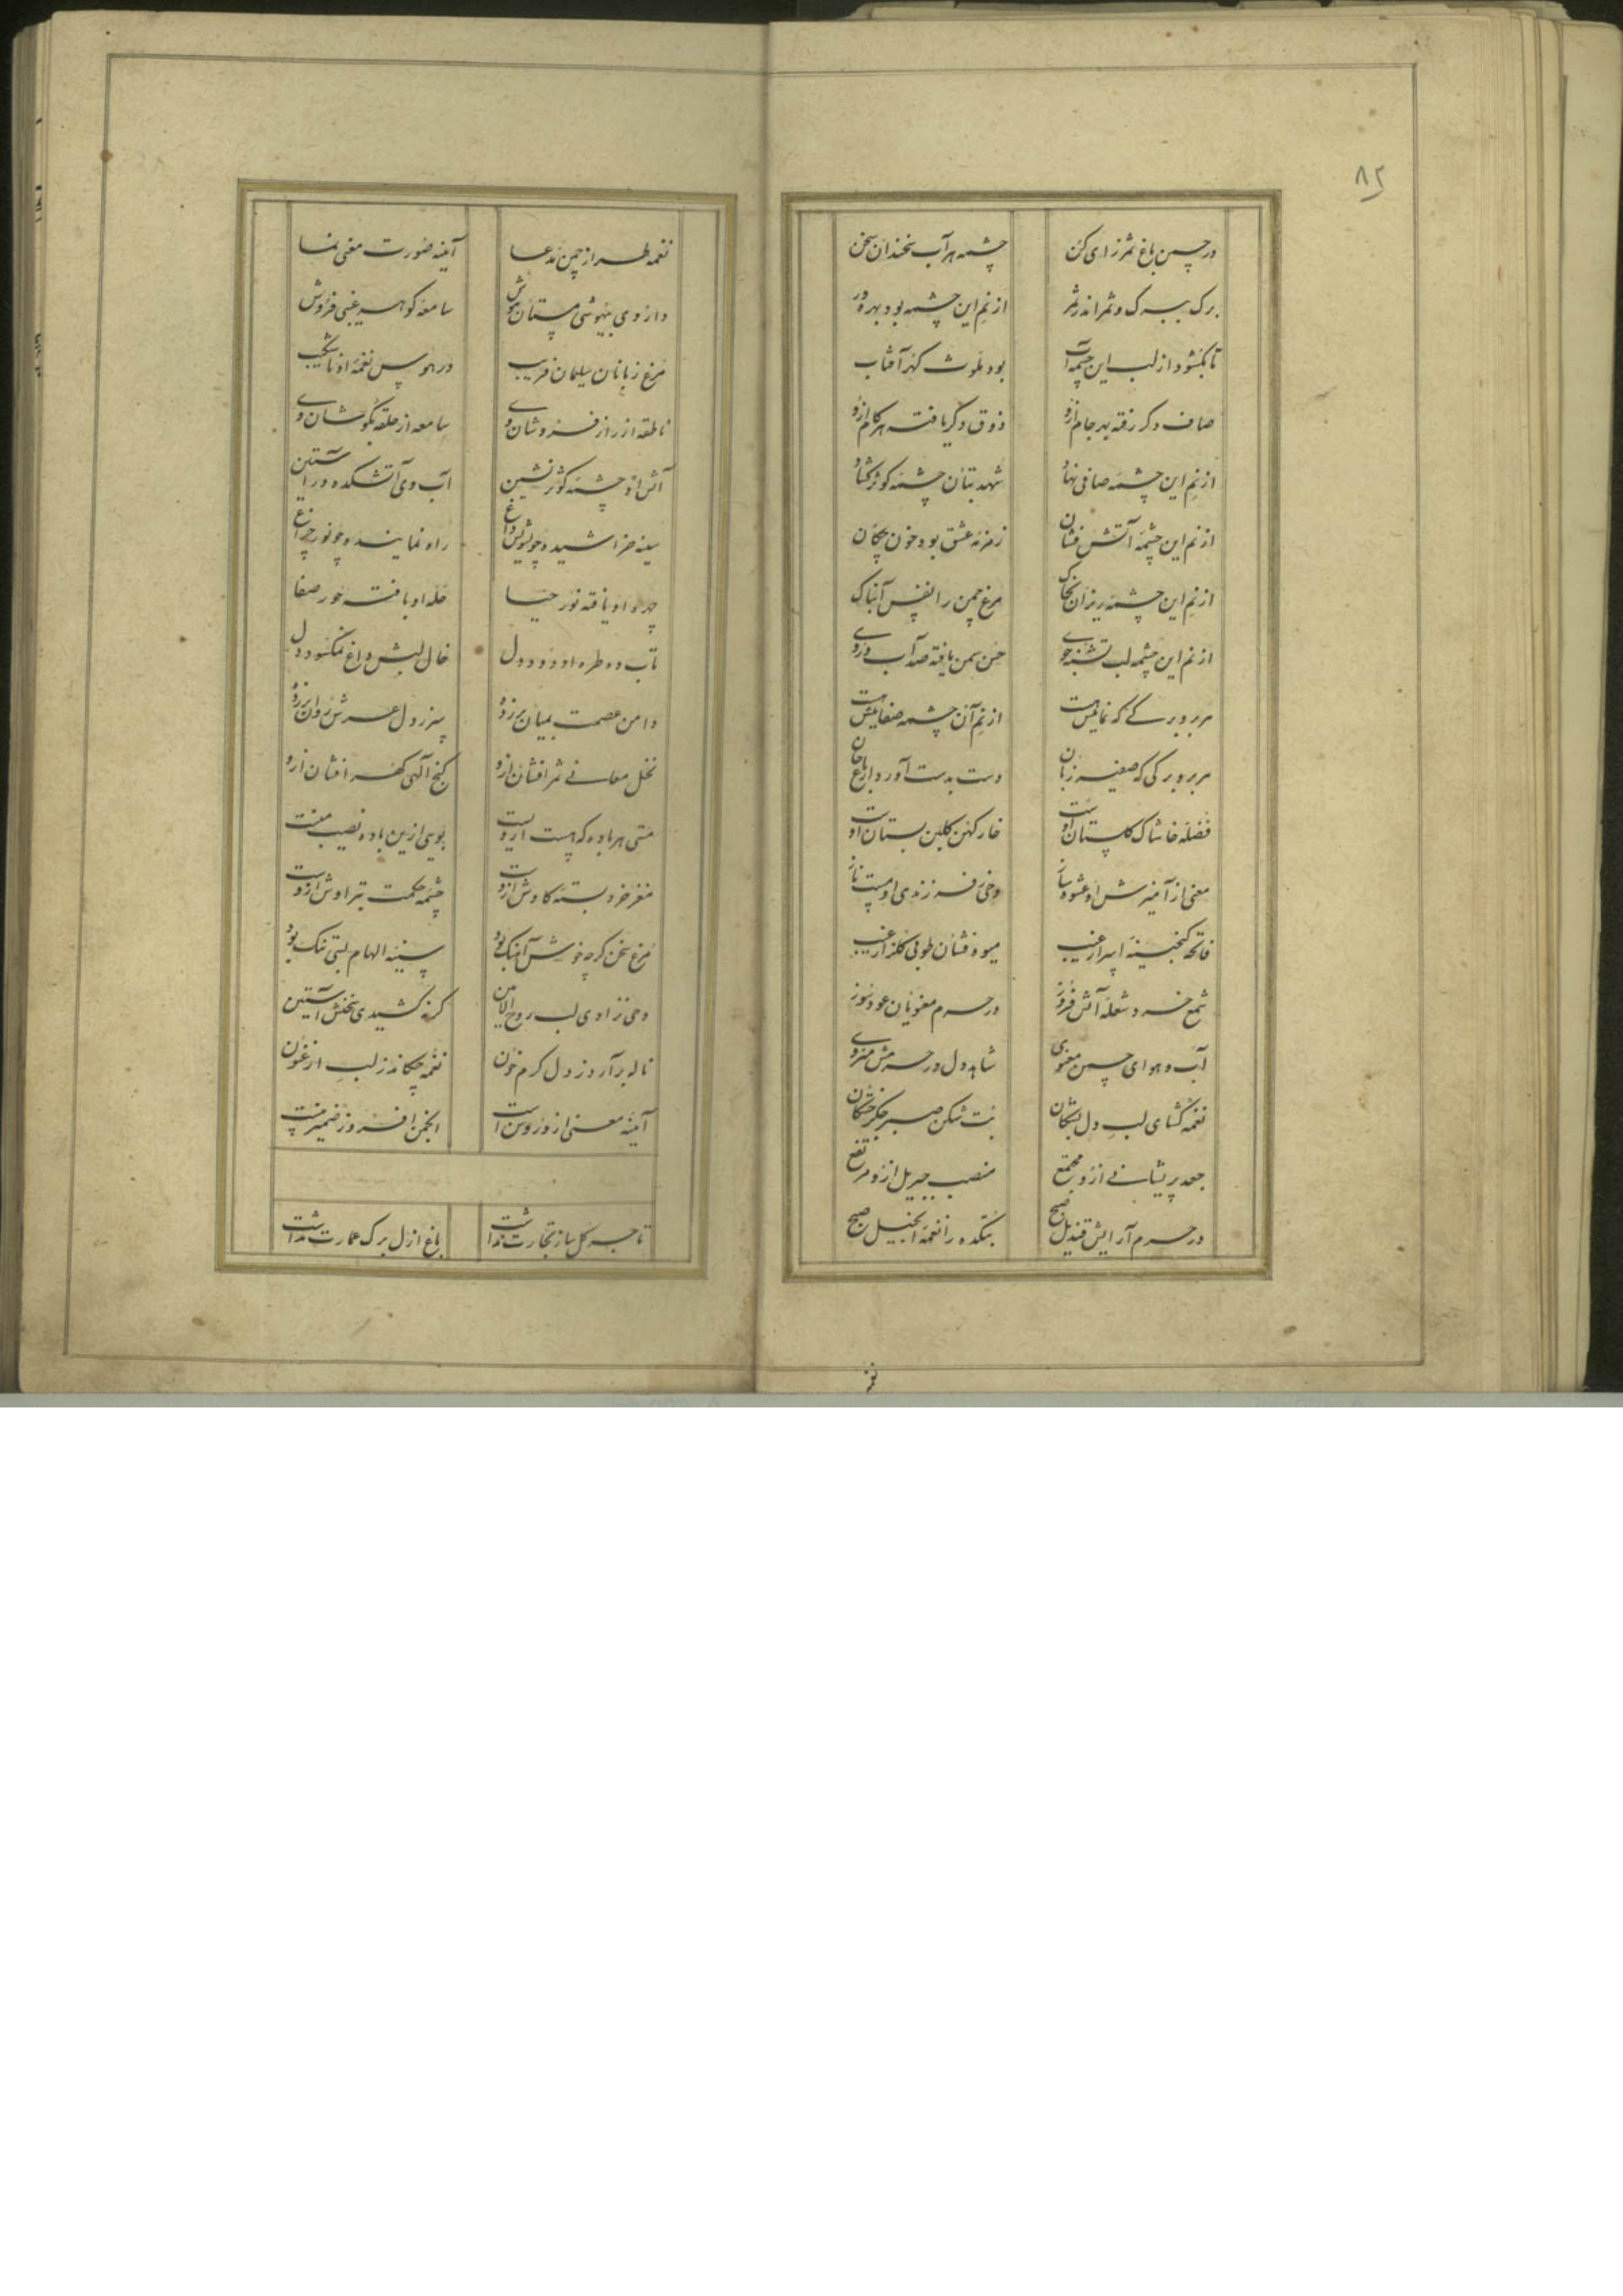 ۸۲
در چمن باغ ثمرزای کن چشمه هر آب سخندان سخن
برک ببرک و ثمر اندر ثمر از نم این چشمه بود بهره ور
تا نکشود از لب این چشمه آب بود ملوث کهر آفتاب
صاف دکر رفته بهر جام ازو ذوق دکر یافته هر کام ازو
از نم این چشمه صافی نهاد شهد بتان چشمه کوثر کشاد
از نم این چشمه آتش فشان زمزمه عشق بود خون چکان
از نم این چشمه ریزان بخاک مرغ چمن را نفس آبناک
از نم این چشمه لب تشنه جوی حسن سمن یافته صد آب روی
هر بر و برکی که نمایش از نم آن چشمه
هر بر و برکی که زبان دست بدست آورد از باغ جان
فضله خاشاک کلستان اوست خار کهن کلبن بستان اوست
معنی از آمیزش او عشوه ساز وحی ز فرزندی او مست ناز
فاتحه کنجینه اسرار غیب میوه فشان طوبی کلزار غیب
شمع خرد شعله آتش فروز در حرم معنویان عود سوز
آب و هوای چمن معنوی شاهد دل در حرمش منزوی
نغمه کشای لب دل بت شکن صبر جکر
جعد پریشانی ازو مجتمع منصب جبریل ازو مرتفع
در حرم آرایش قندیل صبح بتکده را نغمه انجیل صبح
نغمه طراز چمن مدعا آینه صورت معنی نما
داروی بیهوشی مستان هوش سامعه کوهر غیبی فروش
مرغ زبانان سلیمان فریب در هوس نغمه او ناشکیب
ناطقه از راز فروشان وی سامعه از حلقه بکوشان وی
آتش او چشمه کوثر نشین آب وی آتشکده در آستین
سینه خراشیده چو داغ راه نماینده چو نور چراغ
چهره او یافته نور حیا حله او بافته حور صفا
تاب ده طره او دود دل خال لبش داغ نمکسود دل
دامن عصمت بمیان برزده سر ز دل عرش روان برزده
نخل معانی ثمر افشان ازو کنج الهی کهر افشان ازو
مستی هر باده که هست ازوست بویی ازین باده نصیب منست
مغز خرد بسته کاوش ازوست چشمه حکمت بتراوش ازوست
مرغ سخن کرچه خوش آهنک بود سینه الهام بسی تنک بود
وحی نزادی لب روح الامین کر نه کشیدی سخنش آستین
ناله برآرد ز دل کرم خون نغمه چکاند ز لب ارغنون
آینه معنی ازو روشن است انجمن افروز ضمیر منست
تاجر کل ساز تجارت نداشت باغ ازل برک عمارت نداشت